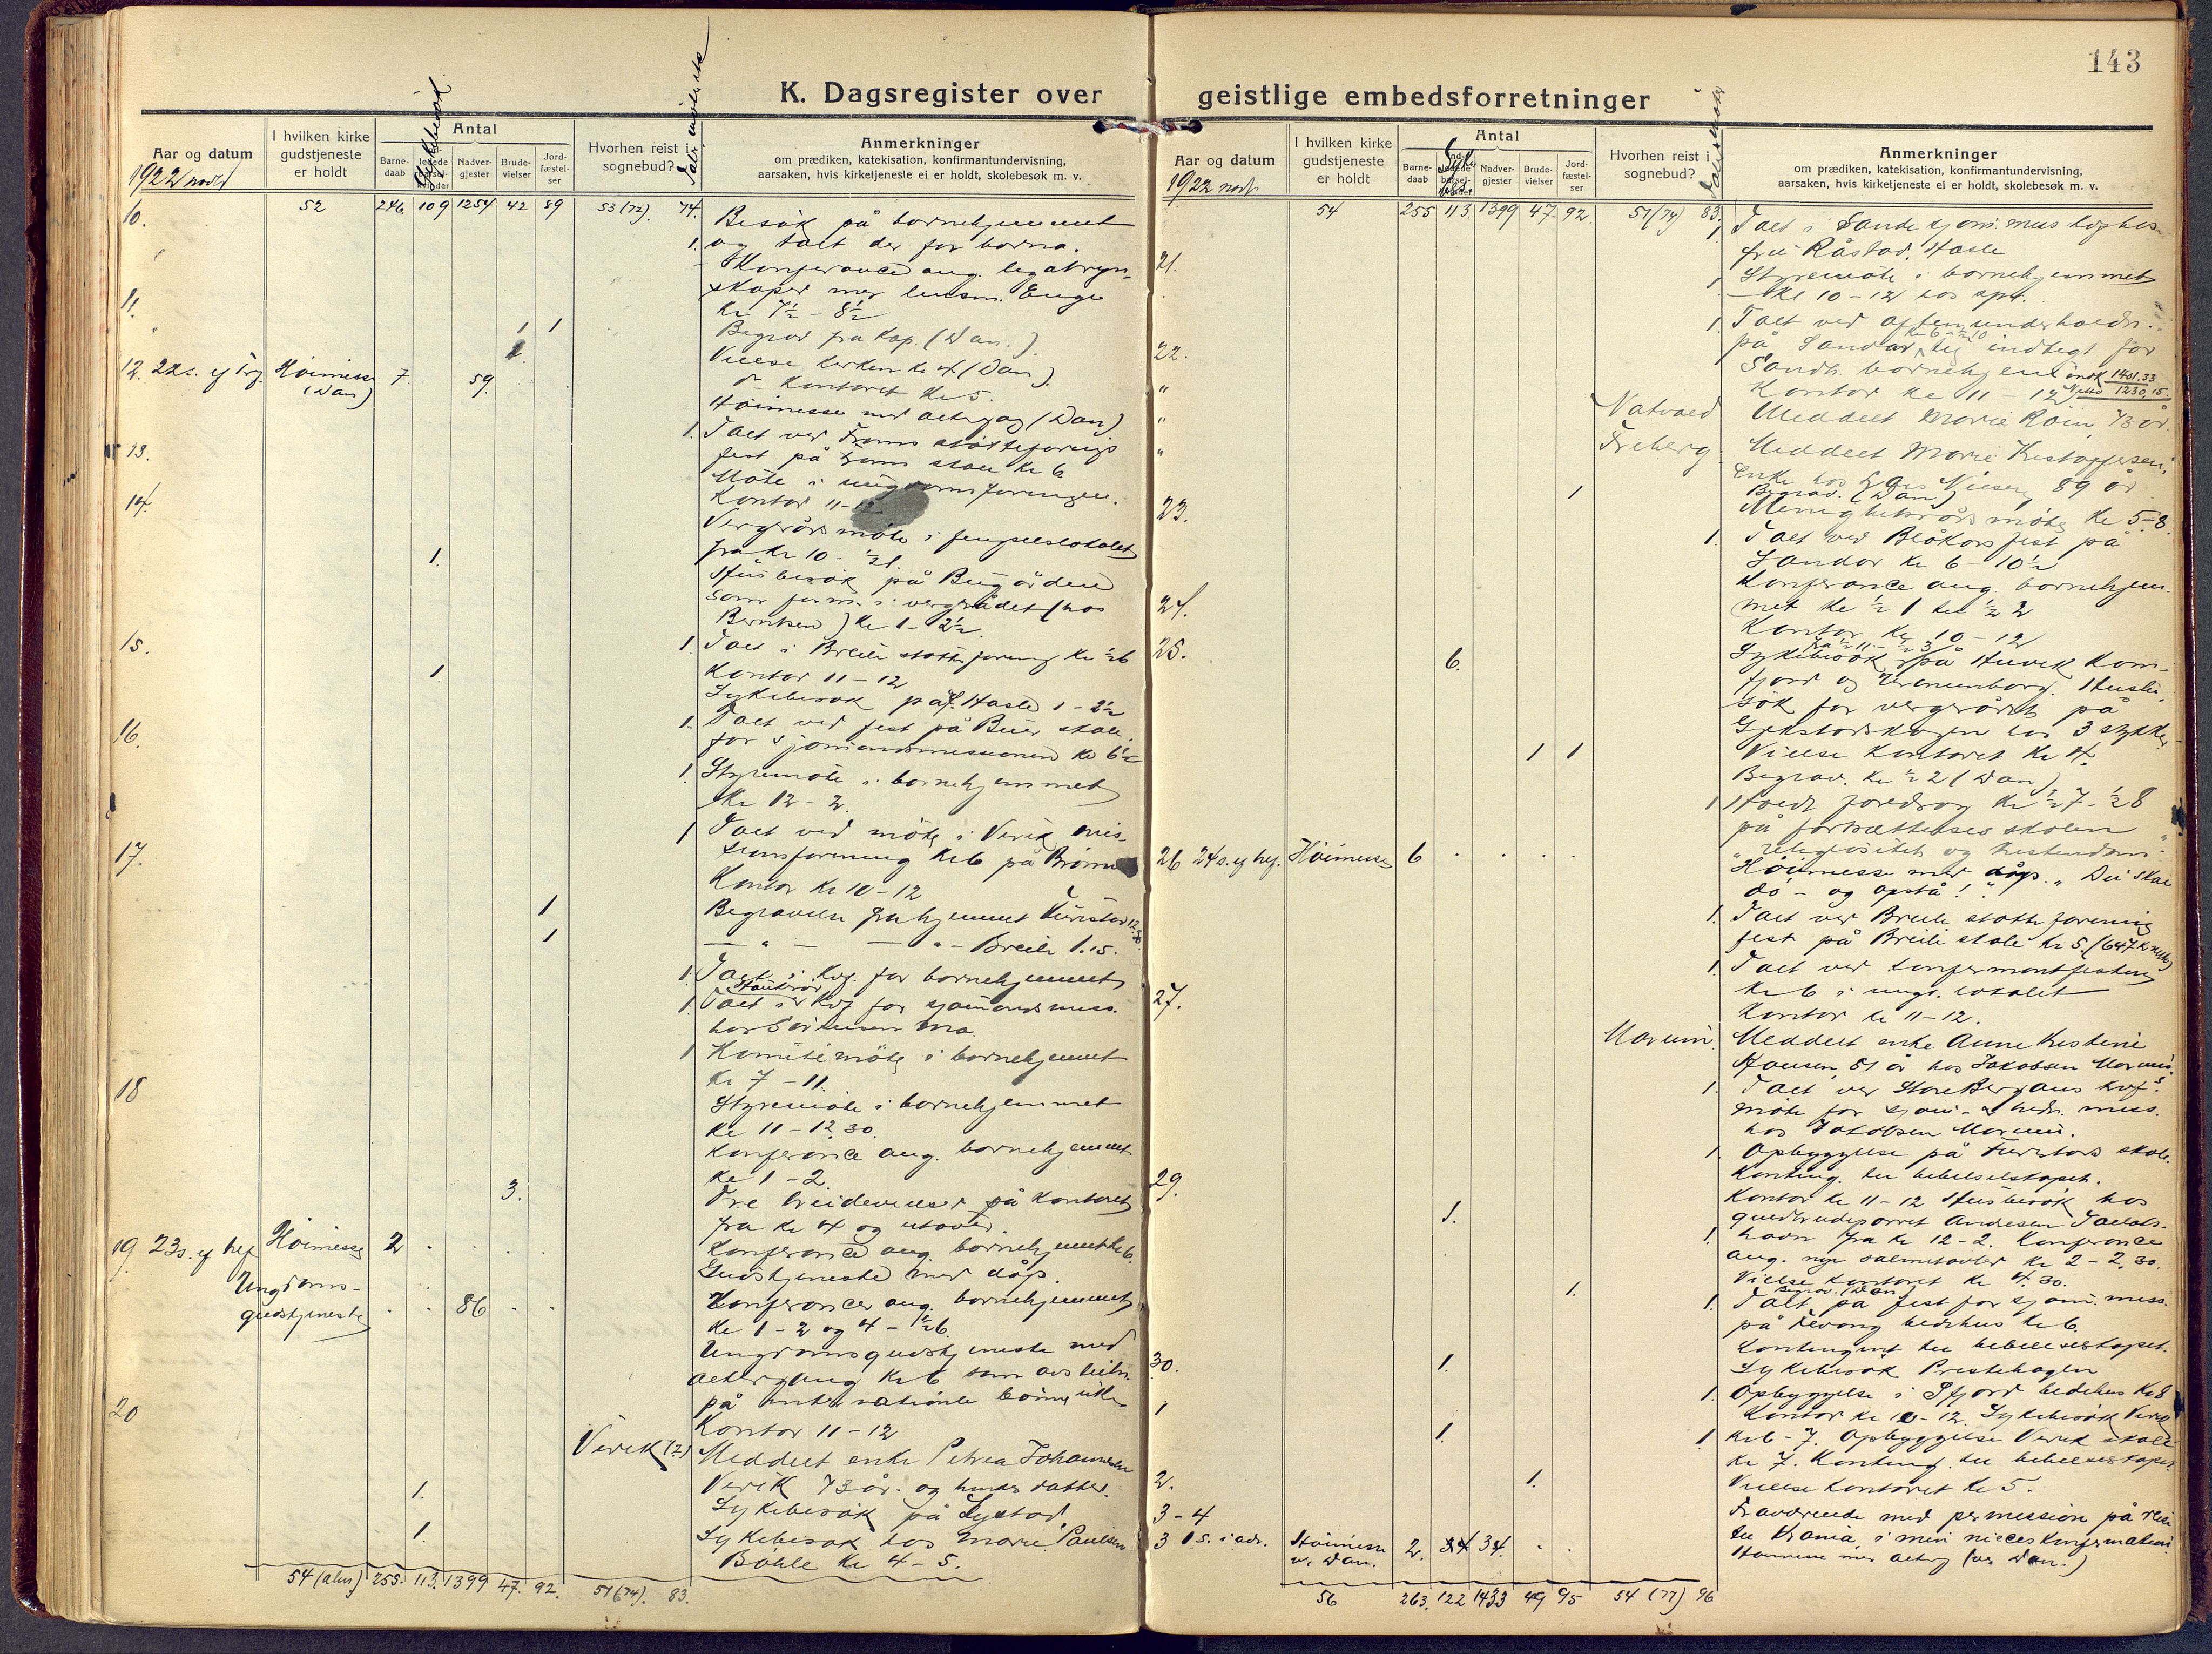 143
K. Dagsregister over geistlige embedsforretninger
Aar og datum
1922 novbr
I hvilken kirke gudstjeneste er holdt
Antal
Barne-daab
Nadver-gjester
Brude-vielser
Jord-fæstel-ser
Hvorhen reist i sognebud?
Anmerkninger
om prædiken, katekisation, konfirmantundervisning,
aarsaken, hvis kirketjeneste ei er holdt, skolebesøk m. v.
52 246 109 1254 42 89 53 (72). 74.
10. Besök på barnehjemmet
1. og talt der for barna.
Konferance ang. legatregn-
skaper med lensm. Enge
Kl 7½ - 8½
11.
1 1 Begrav fra Kap. (Dan.)
Vielse kirken kl 4 (Dan).
Kontoret kl 5.
12. 22 s. ef Trf. Höimesse (Dan) 7. 59. Höimesse med alterg (Dan)
1. Talt ved Frams støtteforenings
fest på Fram skole kl 6
13. Möte i ungdomsforeningen.
14. Kontor 11-12
Vergerådsmöte i fengselslokalet
fra kl 10 - ½1.
1. Husbesök på Bugården
som form. i vergerådet (hos
Berntsen) kl 1 - 2½.
15. 1. Talt i Breili støtteforening kl ½6
Kontor 11-12
1. Sykebesök på Hasle 1 - 2½
16. 1. Talt ved fest på Buer skole
for sjömandsmissionen kl 6½
1. Styremöte i barnehjemmet
Kl 12 - 2.
1 Talt ved möte i Virik mis-
sionsforening kl 6 på
17. Kontor kl 10-12
1 Begravelse fra hjemmet Furustad 12.30.
1 — " — — " — Breili 1.15.
1. Talt i kvf. for barnehjemmet
1. Talt i kvf for sjömandsmiss.
hos
1 Komitémöte i barnehjemmet
kl 7 - 11.
18 Styremöte i barnehjemmet
kl 11 - 12,30.
Konferance ang. barnehjemmet
kl 1 - 2.
3. Tre brudevielser på kontoret
fra kl 4 og utover.
Konferance ang. barnehjemmet kl 6.
19. 23 s. ef tref Höimesse 2 Gudstjeneste med dåp.
Konferancer ang. barnehjemmet
kl 1 - 2 og 4 - ½6.
Ungdoms-
gudstjeneste 86 Ungdomsgudstjeneste med
altergang kl 6 som avslutn.
på internationale bönneuke
20 Kontor 11 - 12
Virik (2) Meddelt enke Petrea Johannesen
Virik 73 år. og hendes datter.
1. Sykebesök på Lystad.
1. Sykebesök hos Marie Paulsen
Böhle kl 4 - 5.
54 255. 113. 1399 47. 92. 51 (74). 83.
Aar og datum
1922 nov.
I hvilken kirke gudstjeneste er holdt
Antal
Barne-daab
Syke
Nadver-gjester
Brude-vielser
Jord-fæstel-ser
Hvorhen reist i sognebud?
Anmerkninger
om prædiken, katekisation, konfirmantundervisning,
aarsaken, hvis kirketjeneste ei er holdt, skolebesøk m. v.
54 255 113. 1399 47. 92. 51 (74) 83.
1 Talt i Sande sjöm. miss kvf hos
fru Råstad, Hasle
21. 1 Styremöte i barnehjemmet
kl 10 - 12 hos
1. Talt ved aftenunderholdn.
på Sandar kl 6 - ½10 til indtegt for
Sandh. barnehjem 1401.33
Netto 1230,15.
22. Kontor kl 11 - 12
" Natvold Meddelt Marie Röin, 73 år
" Freberg Meddelt Marie Kristoffersen,
Enke hos Lars Nilsen 89 år
" 1 Begrav. (Dan)
23. Menighetsrådsmöte kl 5-8.
1. Talt ved Blåkorsfest på
Sandar kl 6 - 10½
Konferance ang. barnehjem-
met kl ½1 til ½2
24. Kontor kl 10 - 12
25. 6. Sykebesök på Huvik Kam-
fjord og Hanenborg. Husbe-
sök for vergerådet på
Gjekstadskogen hos 3 stykker
1 Vielse kontoret kl 4.
1 Begrav. kl ½2 (Dan)
1 Holdt foredrag kl ½7 - ½8
på fortsættelsesskolen
"religiösitet og kristendom"
26 24 s. ef tref. Höimesse 6 Höimesse med dåp. "Du skal
dö - og opstå!"
1. Talt ved Breili støtteforening
fest på Breili skole kl 5. (647 kr netto)
1. Talt ved konfirmantfesten
kl 6 i ungd. lokalet
27. Kontor kl 11-12.
Marum Meddelt enke Anne Kristine
Hansen, 51 år hos Jakobsen Marum.
1. Talt ved Store Bergans kvf.s
möte for sjöm- & hedn. miss.
hos Jakobsen Marum.
1 Opbyggelse på Furustad skole.
Konting. til bibelselskapet.
29. Kontor kl 11-12
1. Husbesök hos
guldbrudeparret Andresen
1. havn fra kl 12-2. Konferance
ang. nye salmetavler kl 2 - 2,30.
Vielse kontoret kl 4.30.
1. Begrav. (Dan)
1. Talt på fest for sjöm. miss.
på Fevang bedehus kl 6.
Kontingent til bibelselskapet.
30. 1. Sykebesök Prestehagen
1. Opbyggelse i Ö fjord bedehus kl 8
1 Kontor kl 10-12. Sykebesök Virik
1. 1 kl 6 - 7. Opbyggelse Virik skole
kl 7. Konting. til bibelselskapet
2. 1. Vielse kontoret kl 5.
3 - 4 Fraværende med permission på reise
til Krania, i min nieces konfirmation.
3 1 s. i adv. Höimesse v. Dan. 2. 34. Höimesse med alterg (ved Dan.)
56 263. 122 1433 49 95 54 (77) 96